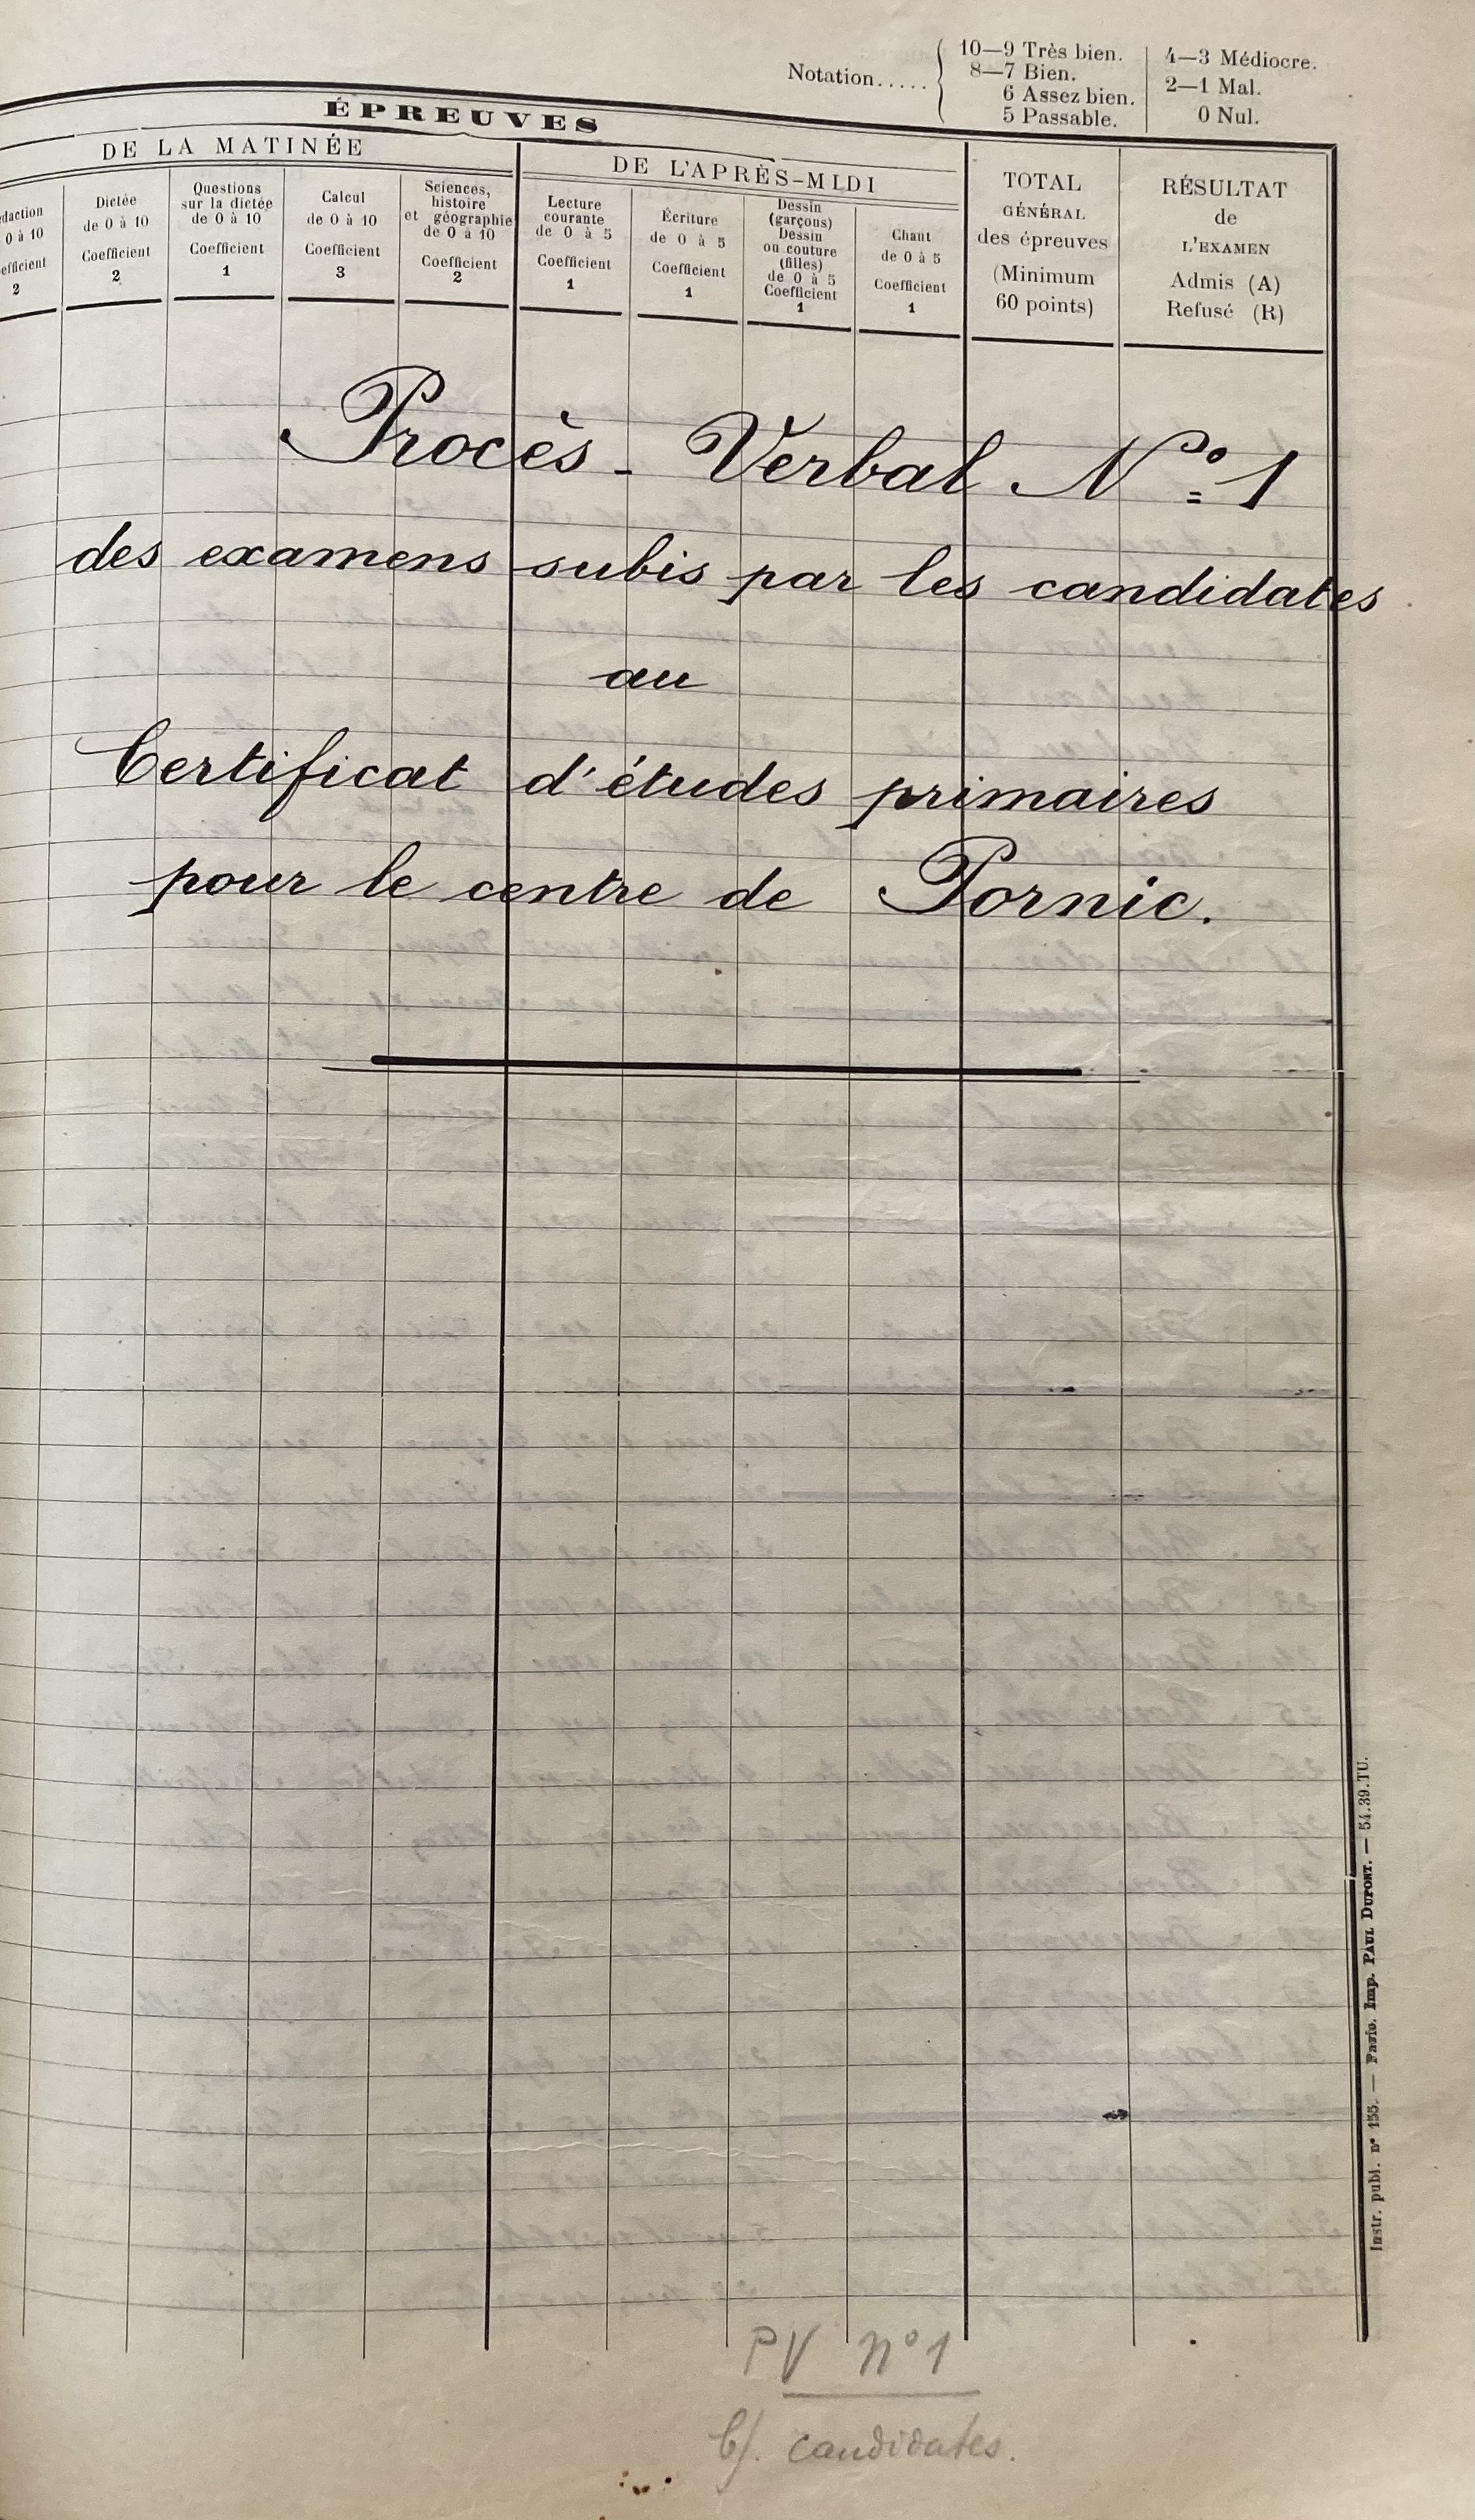 Notation.....
10—9 Très bien.
8—7 Bien.
6 Assez bien.
5 Passable.
4—3 Médiocre.
2—1 Mal.
0 Nul.
ÉPREUVES
DE LA MATINÉE
DE L'APRÈS-MIDI
daction
0 à 10
efficient
2
Dictée
de 0 à 10
Coefficient
2
Questions
sur la dictée
de 0 à 10
Coefficient
1
Calcul
de 0 à 10
Coefficient
3
Sciences,
histoire
et géographie
de 0 à 10
Coefficient
2
Lecture
courante
de 0 à 5
Coefficient
1
Écriture
de 0 à 5
Coefficient
1
Dessin
(garçons)
Dessin
ou couture
(filles)
de 0 à 5
Coefficient
1
Chant
de 0 à 5
Coefficient
1
TOTAL
GÉNÉRAL
des épreuves
(Minimum
60 points)
RÉSULTAT
de
L'EXAMEN
Admis (A)
Refusé (R)
Procès-Verbal N° 1
des examens subis par les candidates
au
Certificat d'études primaires
pour le centre de Pornic.
Instr. publ. n° 155. — Paris. Imp. PAUL DUPONT. — 54.39.TU.
PV n° 1
b/. candidates.